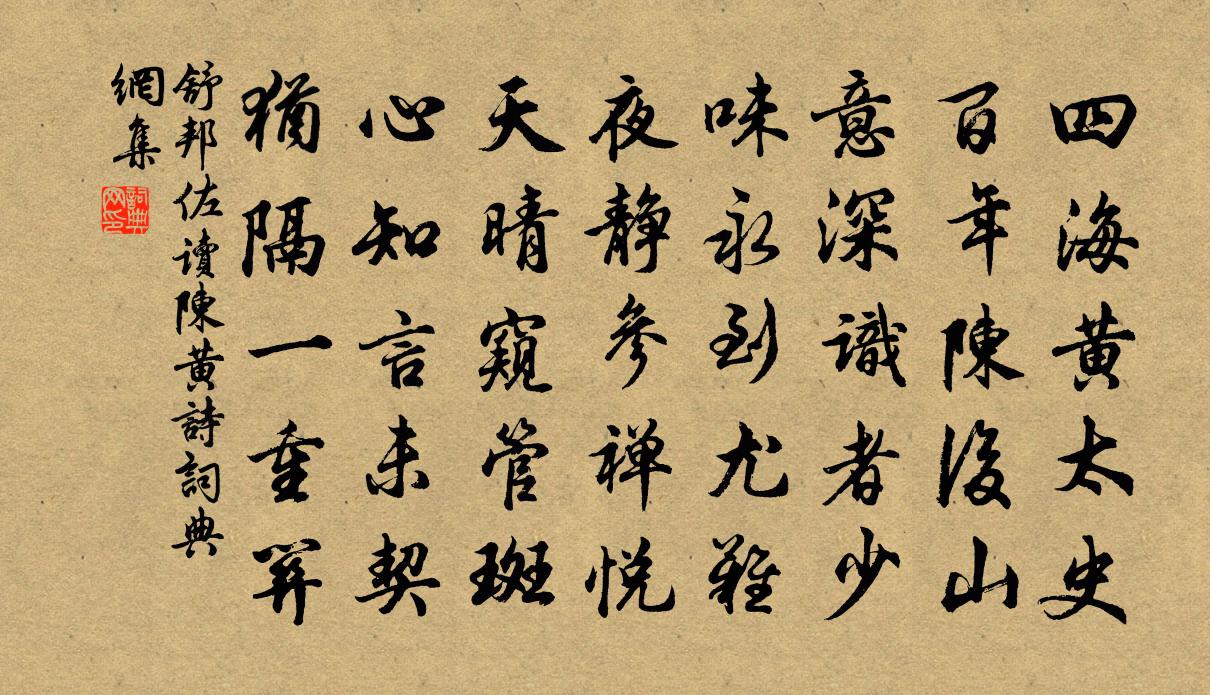 四海黄太史
百年陳後山
意深識者少
味永到尤難
夜静參禅悦
天晴窺管斑
心知言未契
猶隔一重關
舒邦佐讀陳黄詩詞典
網集
詞典網印